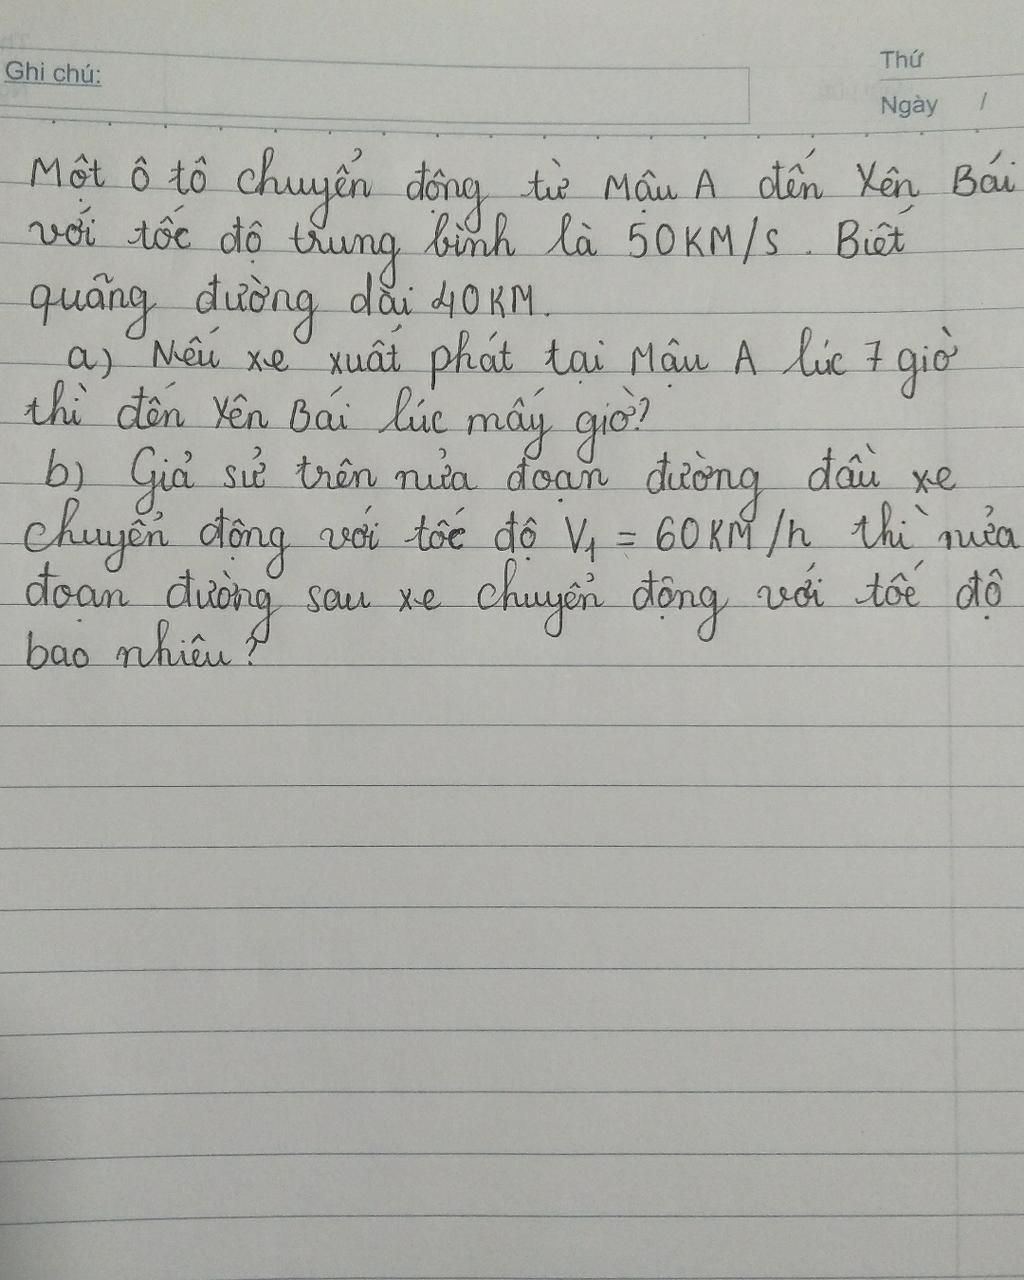 Ghi chú:
Thứ
Ngày /
Một ô tô chuyển động từ Mậu A đến Yên Bái
với tốc độ trung bình là 50KM/s. Biết
quãng đường dài 40KM.
a) Nếu xe xuất phát tại Mậu A lúc 7 giờ
thì đến Yên Bái lúc mấy giờ?
b) Giả sử trên nửa đoạn đường đầu xe
chuyển động với tốc độ V₁ = 60KM/h thì nửa
đoạn đường sau xe chuyển động với tốc độ
bao nhiêu?